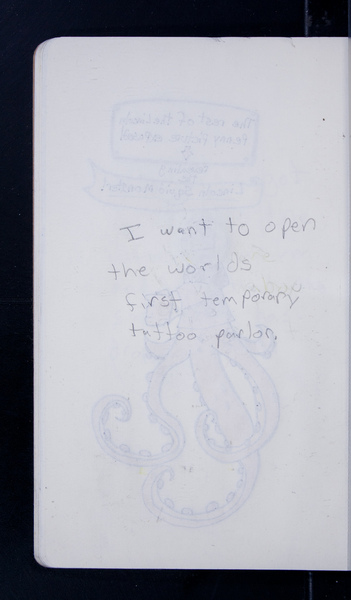 I want to open
the worlds
first temporary
tattoo parlor.